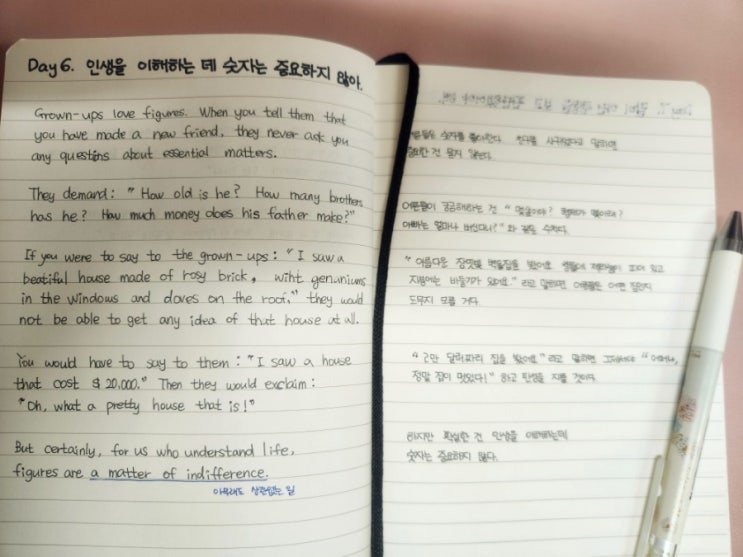 Day 6. 인생을 이해하는 데 숫자는 중요하지 않아.
Grown-ups love figures. When you tell them that
you have made a new friend, they never ask you
any questions about essential matters.
They demand: "How old is he? How many brothers
has he? How much money does his father make?"
If you were to say to the grown-ups: "I saw a
beatiful house made of rosy brick, wiht genuniums
in the windows and doves on the root," they would
not be able to get any idea of that house at all.
You would have to say to them: "I saw a house
that cost $ 20,000." Then they would exclaim:
"Oh, what a pretty house that is!"
But certainly, for us who understand life,
figures are a matter of indifference.
아무래도 상관없는 일
숫자를 좋아한다. 친구를 사귀었다고 말하면
중요한 건 묻지 않는다.
어른들이 궁금해하는 건 " 몇살이야? 형제가 몇이래?
아빠는 얼마나 버신다니?" 와 같은 숫자다.
" 아름다운 장밋빛 벽돌집을 봤어요. 창틀에 제라늄이 피어 있고
지붕에는 비둘기가 있어요." 라고 말하면 어른들은 어떤 집인지
도무지 모를 거다.
" 2만 달러짜리 집을 봤어요" 라고 말하면 그제서야 " 어머나,
정말 집이 멋있다!" 하고 탄성을 지를 것이다.
하지만 확실한 건 인생을 이해하는데
숫자는 중요하지 않다.